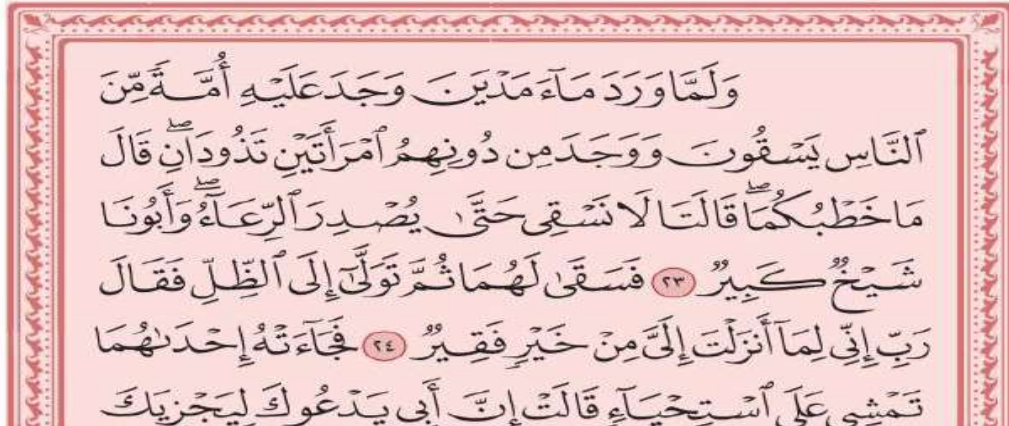 وَلَمَّا وَرَدَ مَآءَ مَدۡيَنَ وَجَدَ عَلَيۡهِ أُمَّةٗ مِّنَ
ٱلنَّاسِ يَسۡقُونَ وَوَجَدَ مِن دُونِهِمُ ٱمۡرَأَتَيۡنِ تَذُودَانِۖ قَالَ
مَا خَطۡبُكُمَاۖ قَالَتَا لَا نَسۡقِي حَتَّىٰ يُصۡدِرَ ٱلرِّعَآءُۖ وَأَبُونَا
شَيۡخٞ كَبِيرٞ ٢٣ فَسَقَىٰ لَهُمَا ثُمَّ تَوَلَّىٰٓ إِلَى ٱلظِّلِّ فَقَالَ
رَبِّ إِنِّي لِمَآ أَنزَلۡتَ إِلَيَّ مِنۡ خَيۡرٖ فَقِيرٞ ٢٤ فَجَآءَتۡهُ إِحۡدَىٰهُمَا
تَمۡشِي عَلَى ٱسۡتِحۡيَآءٖ قَالَتۡ إِنَّ أَبِي يَدۡعُوكَ لِيَجۡزِيَكَ